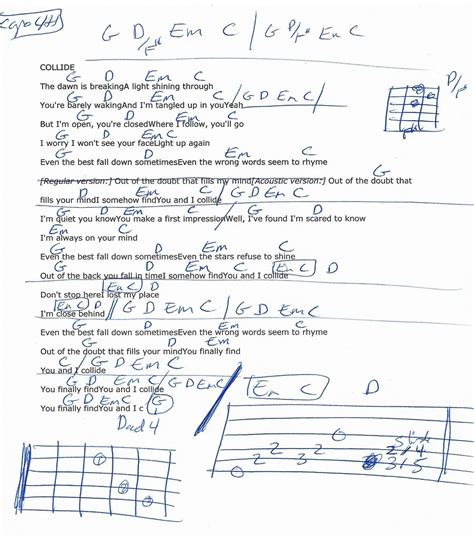 Capo 4th
G D/F# Em C / G D/F# Em C
COLLIDE
G D Em C
The dawn is breakingA light shining through
G D Em C / G D Em C /
You're barely wakingAnd I'm tangled up in youYeah
G D Em C
But I'm open, you're closedWhere I follow, you'll go
G D Em C
I worry I won't see your faceLight up again
G D Em C
Even the best fall down sometimesEven the wrong words seem to rhyme
G
[Regular version:] Out of the doubt that fills my mind[Acoustic version:] Out of the doubt that
D Em C / G D Em C
fills your mindI somehow findYou and I collide
G D
I'm quiet you knowYou make a first impressionWell, I've found I'm scared to know
Em C
I'm always on your mind
G D Em C
Even the best fall down sometimesEven the stars refuse to shine
G D Em C Em C D
Out of the back you fall in timeI somehow findYou and I collide
Em C D
Don't stop hereI lost my place
Em C D // G D Em C / G D Em C
I'm close behind
G D Em C
Even the best fall down sometimesEven the wrong words seem to rhyme
G D Em
Out of the doubt that fills your mindYou finally find
C / G D Em C
You and I collide
G D Em C / G D Em C
You finally findYou and I collide
G D Em C G
You finally findYou and I c
Dad 4
D/F#
Em C D
0 2 2 3 2 0
2/4
3/5